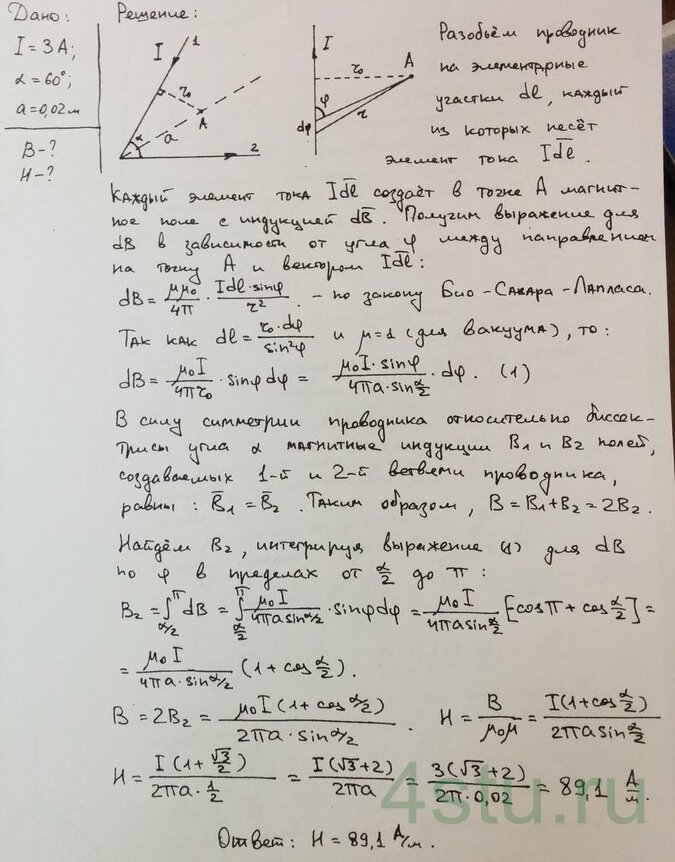 Дано:
I = 3 А;
α = 60°;
a = 0,02 м
B - ?
H - ?
Решение:
I 1
r₀
A
α a
2
I
r₀ A
φ r
dφ
Разобьём проводник
на элементарные
участки dl, каждый
из которых несёт
элемент тока Idl̅.
Каждый элемент тока Idl̅ создаёт в точке А магнит-
ное поле с индукцией dB̅. Получим выражение для
dB в зависимости от угла φ между направлением
на точку А и вектором Idl̅:
dB = μμ₀/4π · Idl·sinφ/r². - по закону Био-Савара-Лапласа.
Так как dl = r₀·dφ/sin²φ и μ=1 (для вакуума), то:
dB = μ₀I/4πr₀ · sinφdφ = μ₀I·sinφ/4πa·sin α/2 · dφ. (1)
В силу симметрии проводника относительно биссек-
трисы угла α магнитные индукции B₁ и B₂ полей,
создаваемых 1-й и 2-й ветвями проводника,
равны: B̅₁ = B̅₂. Таким образом, B = B₁+B₂ = 2B₂.
Найдём B₂, интегрируя выражение (1) для dB
по φ в пределах от α/2 до π:
B₂ = ∫_{α/2}^{π} dB = ∫_{α/2}^{π} μ₀I/4πa sin α/2 · sinφdφ = μ₀I/4πa sin α/2 [cosπ + cos α/2] =
= μ₀I/4πa·sin α/2 (1 + cos α/2).
B = 2B₂ = μ₀I(1 + cos α/2)/2πa·sin α/2. H = B/μ₀μ = I(1+cos α/2)/2πa sin α/2
H = I(1 + √3/2)/2πa·1/2 = I(√3+2)/2πa = 3(√3+2)/2π·0,02 = 89,1 А/м.
4stu.ru
Ответ: H = 89,1 А/м.